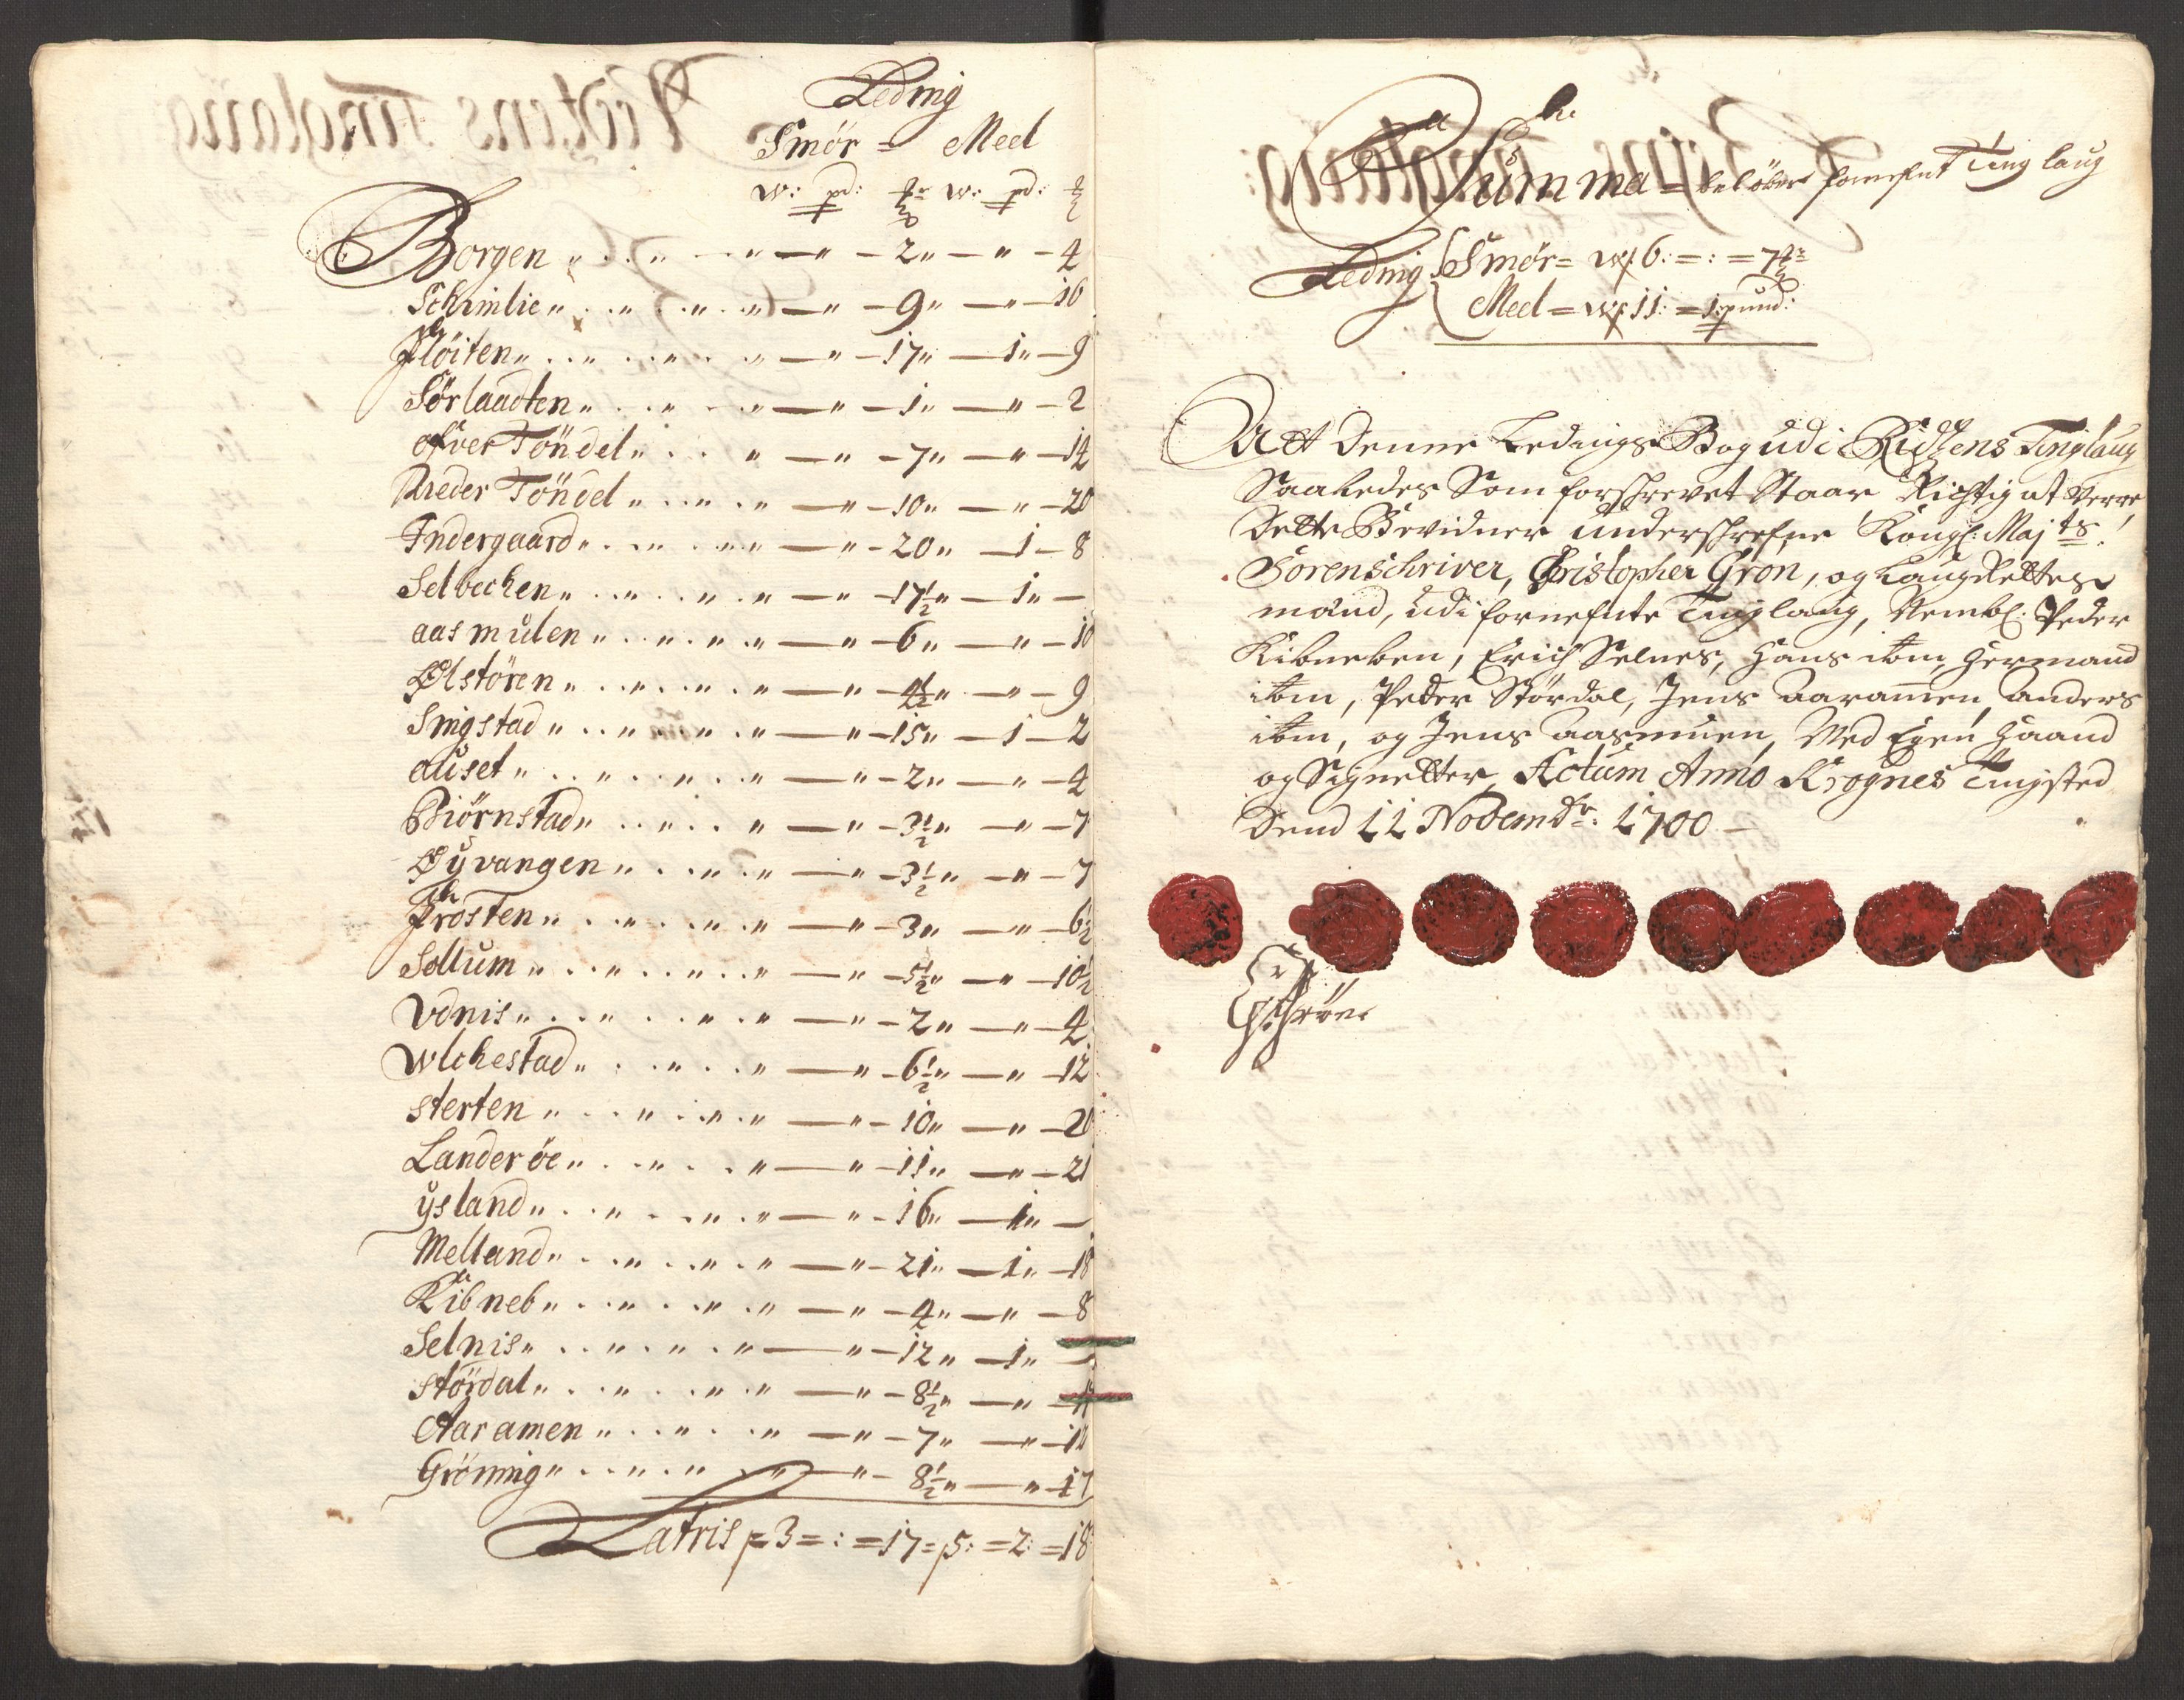 Leding
Smör = Meel
w: pd: w: pd:
Borgen " . . " - " — " - 2 " — " - 4
Schimlie " . . " . . " . " — " - 9 " — " - 16
Flöiten " . . " . . " . " — " - 17 " — 1 " - 9
Sörlaadten " . . " - " — " - 1 " — " - 2
ofver Töndel " . . " — " - 7 " — " - 14
Neder Töndel " . . " . " — " - 10 " — " - 20
Indergaard " . . " . . " — " - 20 " — 1 - 8
Selbechen " . . " . . " . " — " - 17½ " — 1 " —
aasmulen " . . " . " . " — " - 6 " — " - 10
Ølstören " . . " . . " . " — " - 4½ " — " - 9
Singstad " . . " . " . " — " - 15 " — 1 - 2
auset " . . " . . " . " — " - 2 " — " - 4
Biörnstad " . . " . . " — " - 3½ " — " - 7
Øyvangen " . . " . " — " - 3½ " — " - 7
Frosten " . . " . . " . " — " - 3 " — " - 6½
Sollum " . . " . . " . " — " - 5½ " — " - 10½
Vdnis " . . " . . " . " — " - 2 " — " - 4
Wlchestad " . . " . . " — " - 6½ " — " - 12
sterten " . . " . . " . " — " - 10 " — " - 20
Landeröe " . . " . . " — " - 11 " — " - 21
ysland " . . " . . " . " — " - 16 " — 1 " —
Melland " . . " . . " . " — " - 21 " — 1 " - 18
Kibneb " . . " . . " . " — " - 4 " — " - 8
Selnis " . . " . " . " — " - 12 " — 1 " —
stördal " . . " . . " . " — " - 8½ " — "
Aaramen " . . " . . " — " - 7 " — "
Gröning " . . " . " . " — " - 8½ " — " - 17
Latris = 3 = : = 17 = 5 : = 2 : = 18
Summa = belöber fornefnt Ting laug
Leding Smör = w 6 : = : = 7
Meel = w 11 : = 1 pund :
Att Denne Ledings Bog udi Tinglaug
Saaledes Som forschrevet Staar Rigtig at Verre,
Dette Bevidner underschrefne Kongl: Maj ts.
Sorenschriver, Christopher Grön, og Laug Rettes
mænd, udi fornefnte Tinglaug, Nembl: Peder
Kibneben, Erich Selnes, Hans ibm, Hermand
ibm, Peder Stördal, Jens Aaramen, anders
ibm, og Jens Aasmulen, Med Egen Haand
og Signetter, Actum Anno Krognes Tingsted
Dend 11 Novembr: 1700 —
CGröen